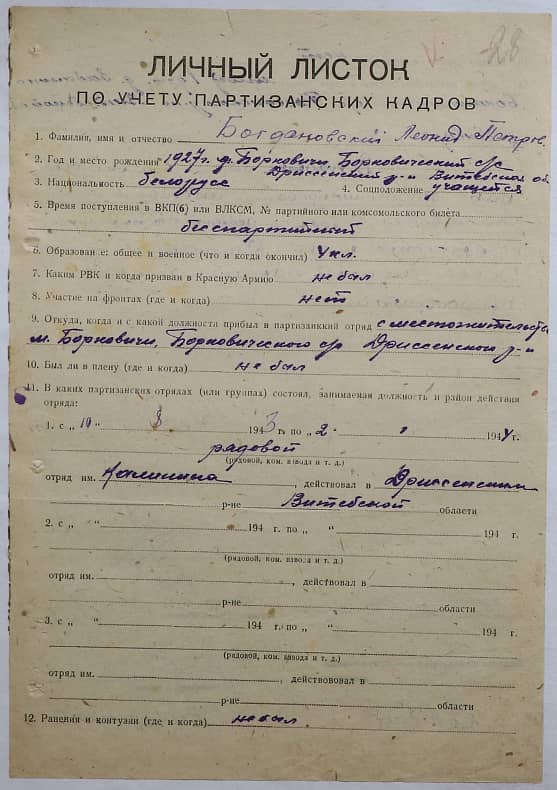 28
ЛИЧНЫЙ ЛИСТОК
ПО УЧЕТУ ПАРТИЗАНСКИХ КАДРОВ
1. Фамилия, имя и отчество Богдановский Леонид Петров.
2. Год и место рождения 1927 г. д. Борковичи, Борковический с/с
Дриссенский р-н Витебская об.
3. Национальность белорусс 4. Соцположение учащегося
5. Время поступления в ВКП(б) или ВЛКСМ, № партийного или комсомольского билета
беспартийный
6. Образование: общее и военное (что и когда окончил) 4 кл.
7. Каким РВК и когда призван в Красную Армию не был
8. Участие на фронтах (где и когда) нет
9. Откуда, когда и с какой должности прибыл в партизанкий отряд с местожительства
м. Борковичи, Борковического с/с Дриссенского р-н
10. Был ли в плену (где и когда) не был
11. В каких партизанских отрядах (или группах) состоял, занимаемая должность и район действия
отряда:
1. с „ 10 “ 8 1943 г. по „ 2 “ 1944 г.
рядовой
(рядовой, ком. взвода и т. д.)
отряд им. Калинина, действовал в Дриссенским
р-не Витебской области
2. с „ “ 194 г. по „ “ 194 г.
(рядовой, ком. взвода и т. д.)
отряд им. , действовал в
р-не области
3. с „ “ 194 г. по „ “ 194 г.
(рядовой, ком. взвода и т. д.)
отряд им. , действововал в
р-не области
12. Ранения и контузии (где и когда) не был